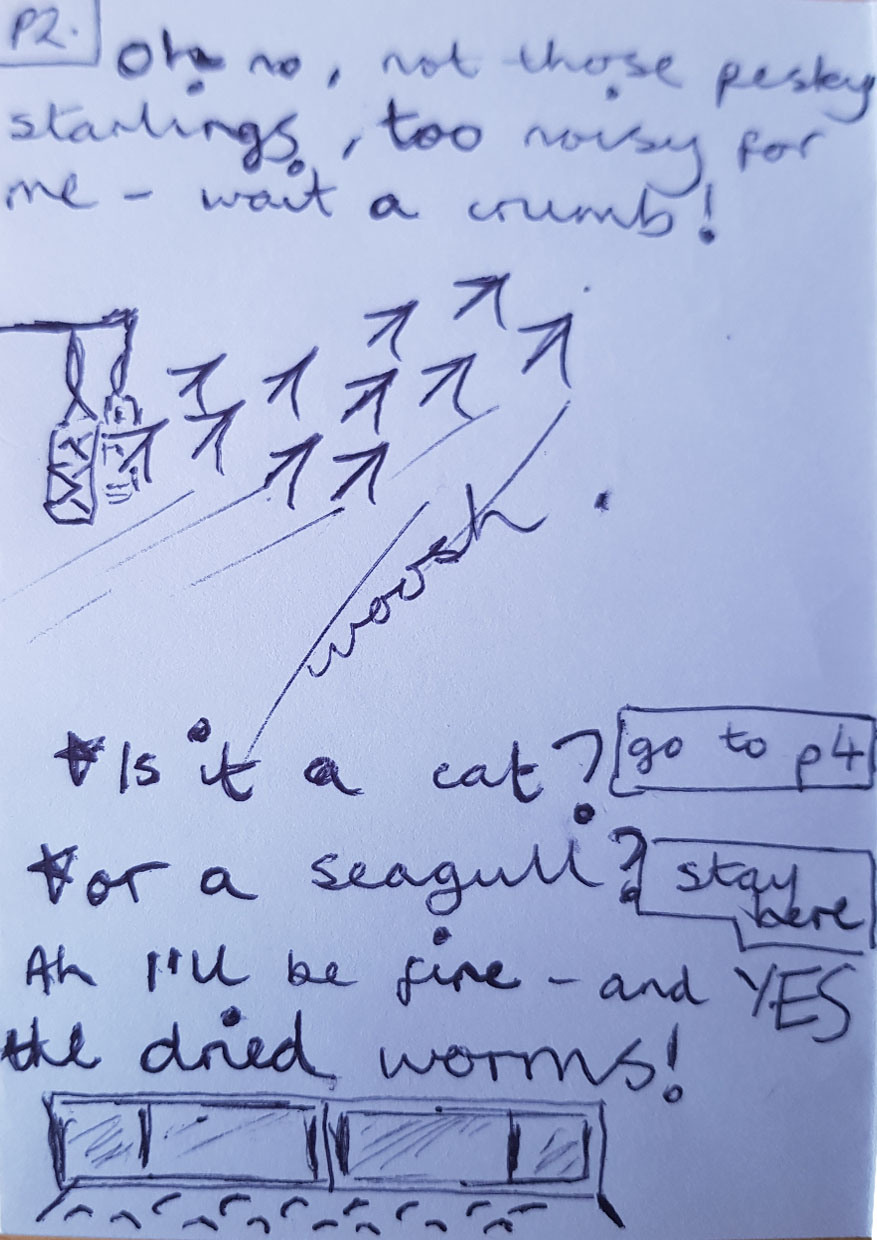 P2.
Oh no, not those pesky
starlings, too noisy for
me - wait a crumb!
woosh.
★ Is it a cat? go to p4
★ or a seagull? stay
here
Ah I'll be fine - and YES
the dried worms!